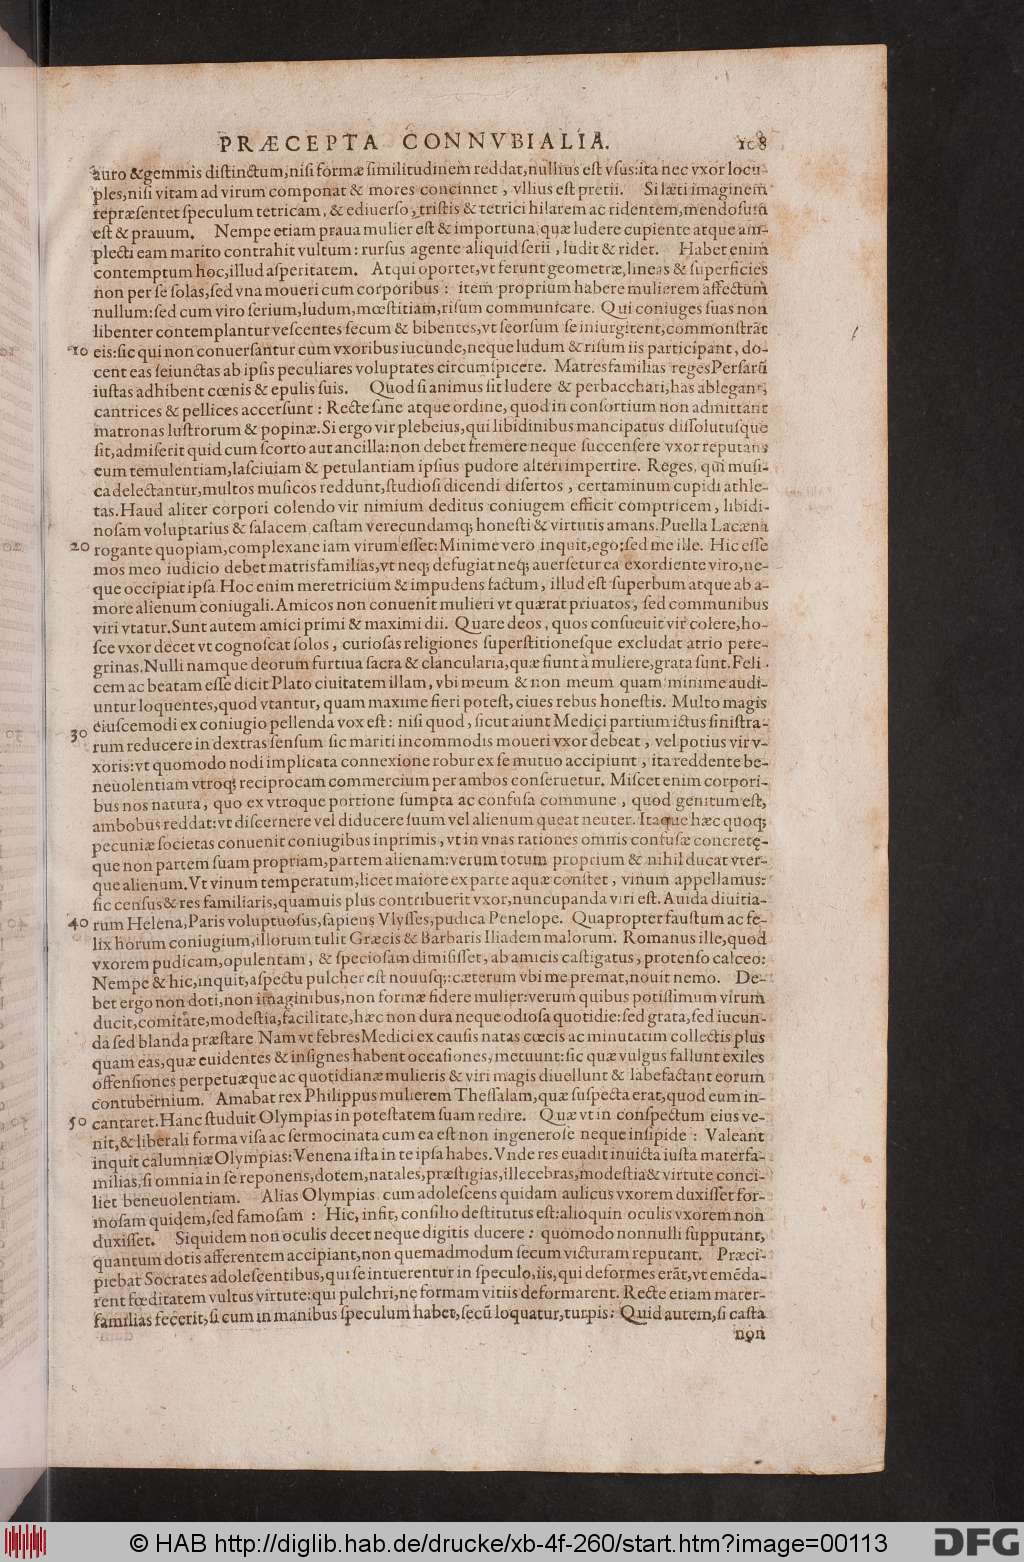 PRÆCEPTA CONNVBIALIA. 108
auro & gemmis distinctum, nisi formæ similitudinem reddat, nullius est vsus: ita nec vxor locu-
ples, nisi vitam ad virum componat & mores concinnet, vllius est pretii. Si læti imaginem
repræsentet speculum tetricam, & ediuerso, tristis & tetrici hilarem ac ridentem, mendosum
est & prauum. Nempe etiam praua mulier est & importuna, quæ ludere cupiente atque am-
plecti eam marito contrahit vultum: rursus agente aliquid serii, ludit & ridet. Habet enim
contemptum hoc, illud asperitatem. Atqui oportet, vt ferunt geometræ, lineas & superficies
non per se solas, sed vna moueri cum corporibus: item proprium habere mulierem affectum
nullum: sed cum viro serium, ludum, mœstitiam, risum communicare. Qui coniuges suas non
libenter contemplantur vescentes secum & bibentes, vt seorsum se iniurgitent, commonstrāt
10 eis: sic qui non conuersantur cum vxoribus iucunde, neque ludum & risum iis participant, do-
cent eas seiunctas ab ipsis peculiares voluptates circumspicere. Matresfamilias reges Persarū
iustas adhibent cœnis & epulis suis. Quod si animus sit ludere & perbacchari, has ablegant,
cantrices & pellices accersunt: Recte sane atque ordine, quod in consortium non admittant
matronas lustrorum & popinæ. Si ergo vir plebeius, qui libidinibus mancipatus dissolutusque
sit, admiserit quid cum scorto aut ancilla: non debet fremere neque succensere vxor reputans
eum temulentiam, lasciuiam & petulantiam ipsius pudore alteri impertire. Reges, qui musi-
ca delectantur, multos musicos reddunt, studiosi dicendi disertos, certaminum cupidi athle-
tas. Haud aliter corpori colendo vir nimium deditus coniugem efficit comptricem, libidi-
nosam voluptarius & salacem, castam verecundamq; honesti & virtutis amans. Puella Lacæna
20 rogante quopiam, complexane iam virum esset: Minime vero inquit, ego; sed me ille. Hic esse
mos meo iudicio debet matrisfamilias, vt neq; defugiat neq; auersetur ea exordiente viro, ne-
que occipiat ipsa. Hoc enim meretricium & impudens factum, illud est superbum atque ab a-
more alienum coniugali. Amicos non conuenit mulieri vt quærat priuatos, sed communibus
viri vtatur. Sunt autem amici primi & maximi dii. Quare deos, quos consueuit vir colere, ho-
sce vxor decet vt cognoscat solos, curiosas religiones superstitionesque excludat atrio pere-
grinas. Nulli namque deorum furtiua sacra & clancularia, quæ fiunt à muliere, grata sunt. Feli-
cem ac beatam esse dicit Plato ciuitatem illam, vbi meum & non meum quam minime audi-
untur loquentes, quod vtantur, quam maxime fieri potest, ciues rebus honestis. Multo magis
eiuscemodi ex coniugio pellenda vox est: nisi quod, sicut aiunt Medici partium ictus sinistra-
30 rum reducere in dextras sensum sic mariti incommodis moueri vxor debeat, vel potius vir v-
xoris: vt quomodo nodi implicata connexione robur ex se mutuo accipiunt, ita reddente be-
neuolentiam vtroq; reciprocam commercium per ambos conseruetur. Miscet enim corpori-
bus nos natura, quo ex vtroque portione sumpta ac confusa commune, quod genitum est,
ambobus reddat: vt discernere vel diducere suum vel alienum queat neuter. Itaque hæc quoq;
pecuniæ societas conuenit coniugibus inprimis, vt in vnas rationes omnis confusæ concretę-
que non partem suam propriam, partem alienam: verum totum proprium & nihil ducat vter-
que alienum. Vt vinum temperatum, licet maiore ex parte aquæ constet, vinum appellamus:
sic census & res familiaris, quamuis plus contribuerit vxor, nuncupanda viri est. Auida diuitia-
40 rum Helena, Paris voluptuosus, sapiens Vlysses, pudica Penelope. Quapropter faustum ac fe-
lix horum coniugium, illorum tulit Græcis & Barbaris Iliadem malorum. Romanus ille, quod
vxorem pudicam, opulentam, & speciosam dimisisset, ab amicis castigatus, protenso calceo:
Nempe & hic, inquit, aspectu pulcher est nouusq;: cæterum vbi me premat, nouit nemo. De-
bet ergo non doti, non imaginibus, non formæ fidere mulier: verum quibus potissimum virum
ducit, comitate, modestia, facilitate, hæc non dura neque odiosa quotidie: sed grata, sed iucun-
da sed blanda præstare Nam vt febres Medici ex causis natas cœcis ac minutatim collectis plus
quam eas, quæ euidentes & insignes habent occasiones, metuunt: sic quæ vulgus fallunt exiles
offensiones perpetuæque ac quotidianæ mulieris & viri magis diuellunt & labefactant eorum
contubernium. Amabat rex Philippus mulierem Thessalam, quæ suspecta erat, quod eum in-
50 cantaret. Hanc studuit Olympias in potestatem suam redire. Quæ vt in conspectum eius ve-
nit, & liberali forma visa ac sermocinata cum ea est non ingenerose neque insipide: Valeant
inquit calumniæ Olympias: Venena ista in te ipsa habes. Vnde res euadit inuicta iusta materfa-
milias, si omnia in se reponens, dotem, natales, præstigias, illecebras, modestia & virtute conci-
liet beneuolentiam. Alias Olympias cum adolescens quidam aulicus vxorem duxisset for-
mosam quidem, sed famosam: Hic, infit, consilio destitutus est: alioquin oculis vxorem non
duxisset. Siquidem non oculis decet neque digitis ducere: quomodo nonnulli supputant,
quantum dotis afferentem accipiant, non quemadmodum secum victuram reputant. Præci-
piebat Socrates adolescentibus, qui se intuerentur in speculo, iis, qui deformes erāt, vt emēda-
rent fœditatem vultus virtute: qui pulchri, ne formam vitiis deformarent. Recte etiam mater-
familias fecerit, si cum in manibus speculum habet, secū loquatur, turpis: Quid autem, si casta
non
© HAB http://diglib.hab.de/drucke/xb-4f-260/start.htm?image=00113
DFG